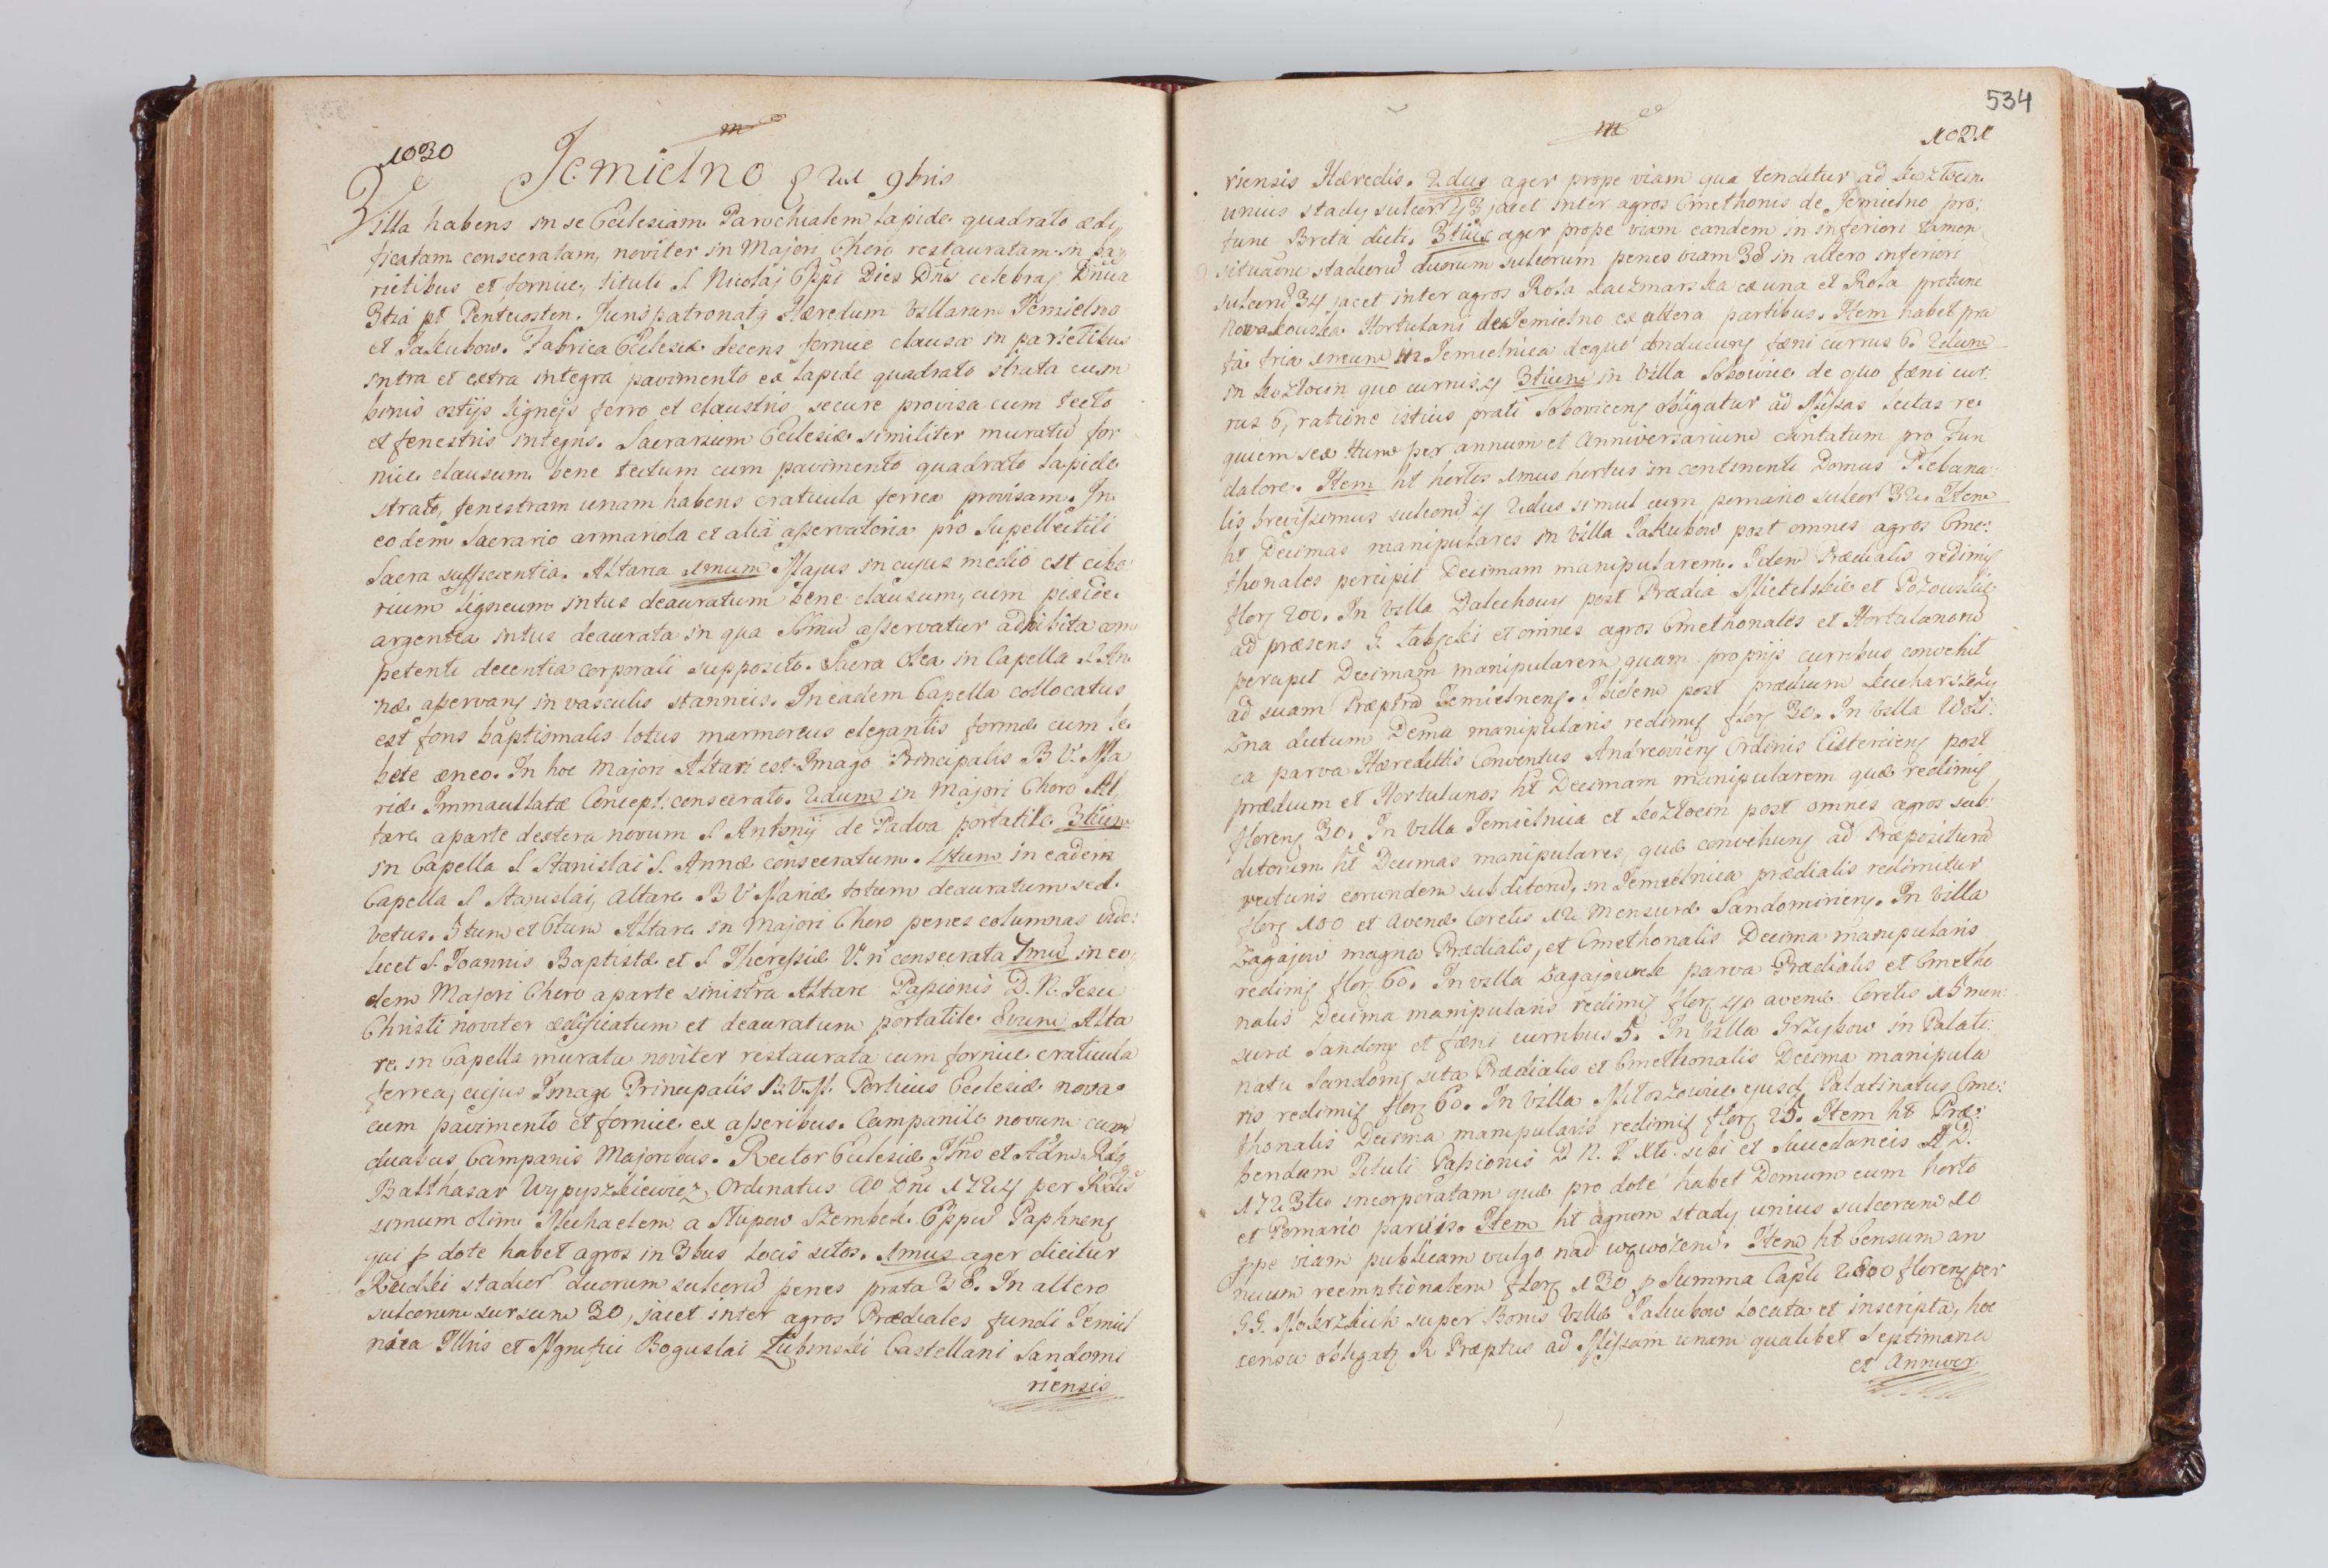 m
1030
Jemielno
9bris
Villa habens in se Ecclesiam Parochialem lapide quadrato ædi„
ficatam consecratam, noviter in Majori Choro restauratam in pa„
rietibus et fornice, tituli S Nicolai Eppi Dies Dnis celebrat Dnica
3tia pt Pentecosten. Juris patronatq Hæredum Villarum Jemielno
et Jakubow. Fabrica Eclesiæ decens fornice clausa in parietibus
intra et extra integra pavimento ex lapide quadrato strata cum
bonis ostijs ligneis ferro et claustris secure provisa cum tecto
et fenestris integris. Sacrarium Ecclesiæ similiter muratu for
nice clausum bene tectum cum pavimento quadrato lapide
strato, fenestram unam habens craticula ferrea provisam. In
eodem Sacrario armariola et alia asservatoria pro Supellectili
Sacra sufficientia. Altaria 1mum Majus in cujus medio est cibo
rium ligneum intus deauratum bene clausum, cum pixide
argentea intus deaurata in qua SSmu asservatur adhibita com
petenti decentia corporali supposito. Sacra Olea in Capella S. An„
næ asservanq in vasculis stanneis. In eadem Capella collocatus
est fons baptismalis totus marmoreus elegantis formæ cum le„
bete æneo. In hoc Majori Altari est Imago Principalis B V. Ma
riæ Immaculatæ Concept: consecrato. 2dum in Majori Choro Al„
tare a parte dextera novum S Antonij de Padva portatile. 3tium
in Capella S Stanislai S. Annæ consecratum. 4tum in eadem
Capella S Stanislai, altare B V Mariæ totum deauratum sed
vetus. 5tum et 6tum Altare in Majori Choro penes columnas vide:
licet S. Joannis Baptistæ et S Theressiæ V. n consecrata 7mu in eo„
dem Majori Choro a parte sinistra Altare Passionis D. N. Jesu
Christi noviter ædificatum et deauratum portatile 8vum Alta
re in Capella murata noviter restaurata cum fornice craticula
ferrea, cujus Imago Principalis B.V.M. Porticus Ecclesiæ nova
cum pavimento et fornice ex asseribus. Campanile novum cum
duabus Campanis Majoribus. Rector Ecclesiæ Plris et Adm Rdq
Balthasar Wypyszkiewicz, Ordinatus Ao Dni 1724 per Rdis
simum olim Michaelem a Slupow Szembek Eppu Paphnenq
qui p dote habet agros in 3bus locis sitos. 1mus ager dicitur
Rudki stadior duorum sulcoru penes prata 38. In altero
sulcorum sursum 30, jacet inter agros Prædiales fundi Jemiel
nica Illris et Mgnifici Boguslai Łubinski Castellani Sandomi
riensis
534
m
1021
riensis Hæredis. 2dus ager prope viam qua tenditur ad
unius stadij sulcor 43 jacet inter agros Cmethonis de Jemielno pro:
tunc Breta dicti. 3tius ager prope viam eandem in inferiori tamen
situaone stadioru duorum sulcorum penes viam 38 in altero inferiori
sulcoru 34 jacet inter agros Rosa Kaczmarska ex una et Rosa protunc
Nowakowska Hortulani de Jemielno ex altera partibus. Item habet pra
ta tria 1mum in Jemielnica de quo conducunq fæni currus 6. 2dum
in Kozłocin quo currus 4 3tium in Villa Sobowice de quo fæni cur:
rus 6, ratione istius prati Sobovicenq obligatur ad Missas lectas re
quiem sex Hunc per annum et Anniversarium cantatum pro Fun
datore. Item ht hortos 1mus hortus in continenti Domus Plebana„
lis brevissimus sulcoru 4 2dus simul cum pomario sulcor 32. Item
ht Decimas manipulares in Villa Jakubow post omnes agros Cme:
thonales percipit Decimam manipularem. Idem Prædialis redimiq
flor 200. In Villa Dalechowy post Prædia Mietelskie et Pożowskie
ad præsens G. et omnes agros Cmethonales et Hortulanoru
percipit Decimam manipularem quam proprijs curribus convehit
ad suam Præptra Jemielnenq. Ibidem post prædium Kucharszczy
zna dictum Dema manipularis redimiq flor 30. In Villa Woli:
ca parva Hæreditis Conventus Andreoviens Ordinis Cisterciens post
prædium et Hortulanos ht Decimam manipularem quæ redimiq
florenq 30. In Villa Jemielnica et Kozłocin post omnes agros sub:
ditorum ht Decimas manipulares, quæ convehunq ad Præposituram
vecturis eorundem subditoru, in Jemielnica prædialis redimitur
flor 100 et avenæ Coretis 12 Mensuræ Sandomiriens. In Villa
Zagajow magna Prædialis, et Cmethonalis Decima manipularis
redimiq flor 60. In Villa Zagajowek parva Prædialis et Cmetho
nalis Decima manipularis redimiq flor 40 avenæ Coretis 15 men
suræ Sandomq et fæni curribus 5. In Villa Grzybow in Palati:
natu Sandomq sita Prædialis et Cmethonalis Decima manipula
ris redimiq flor 60. In Villa Miłoszowice ejusd Palatinatus Cme:
thonalis Decima manipularis redimiq flor 25. Item ht Præ:
bendam Tituli Passionis D N. J. Xti sibi et Succedaneis A D.
1723tio incorporatam quæ pro dote habet Domum cum horto
et Pomario parvis. Item ht agrum stadij unius sulcorum 10
ppe viam publicam vulgo nad wąwozem. Item ht Censum an
nuum reemptionalem flor 130 p Summa Capli 2600 florenq per
G.G. Mokrskich super Bonis Villæ Jakubow locata et inscripta, hoc
censu obligatq R Præptus ad Missam unam qualibet Septimana
et Anniver